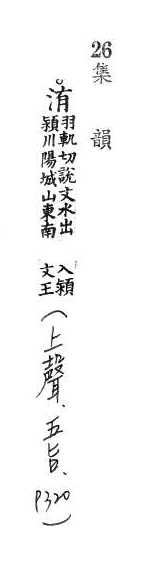 26 集韻
洧
羽軌切說文水出
潁川陽城山東南
入潁
文王
(上聲、五旨、P320)